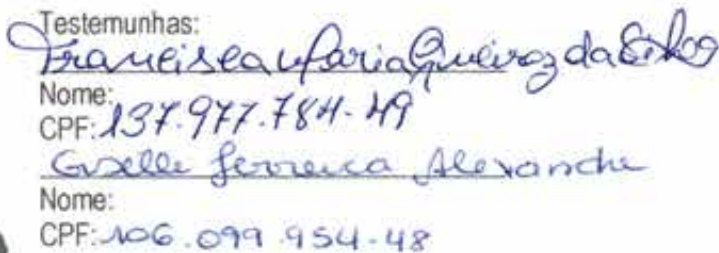 Testemunhas:
Francisca Maria Queiroz da Silva
Nome:
CPF: 137.977.784-49
Giselle Ferreira Alexandre
Nome:
CPF: 106.099.954-48